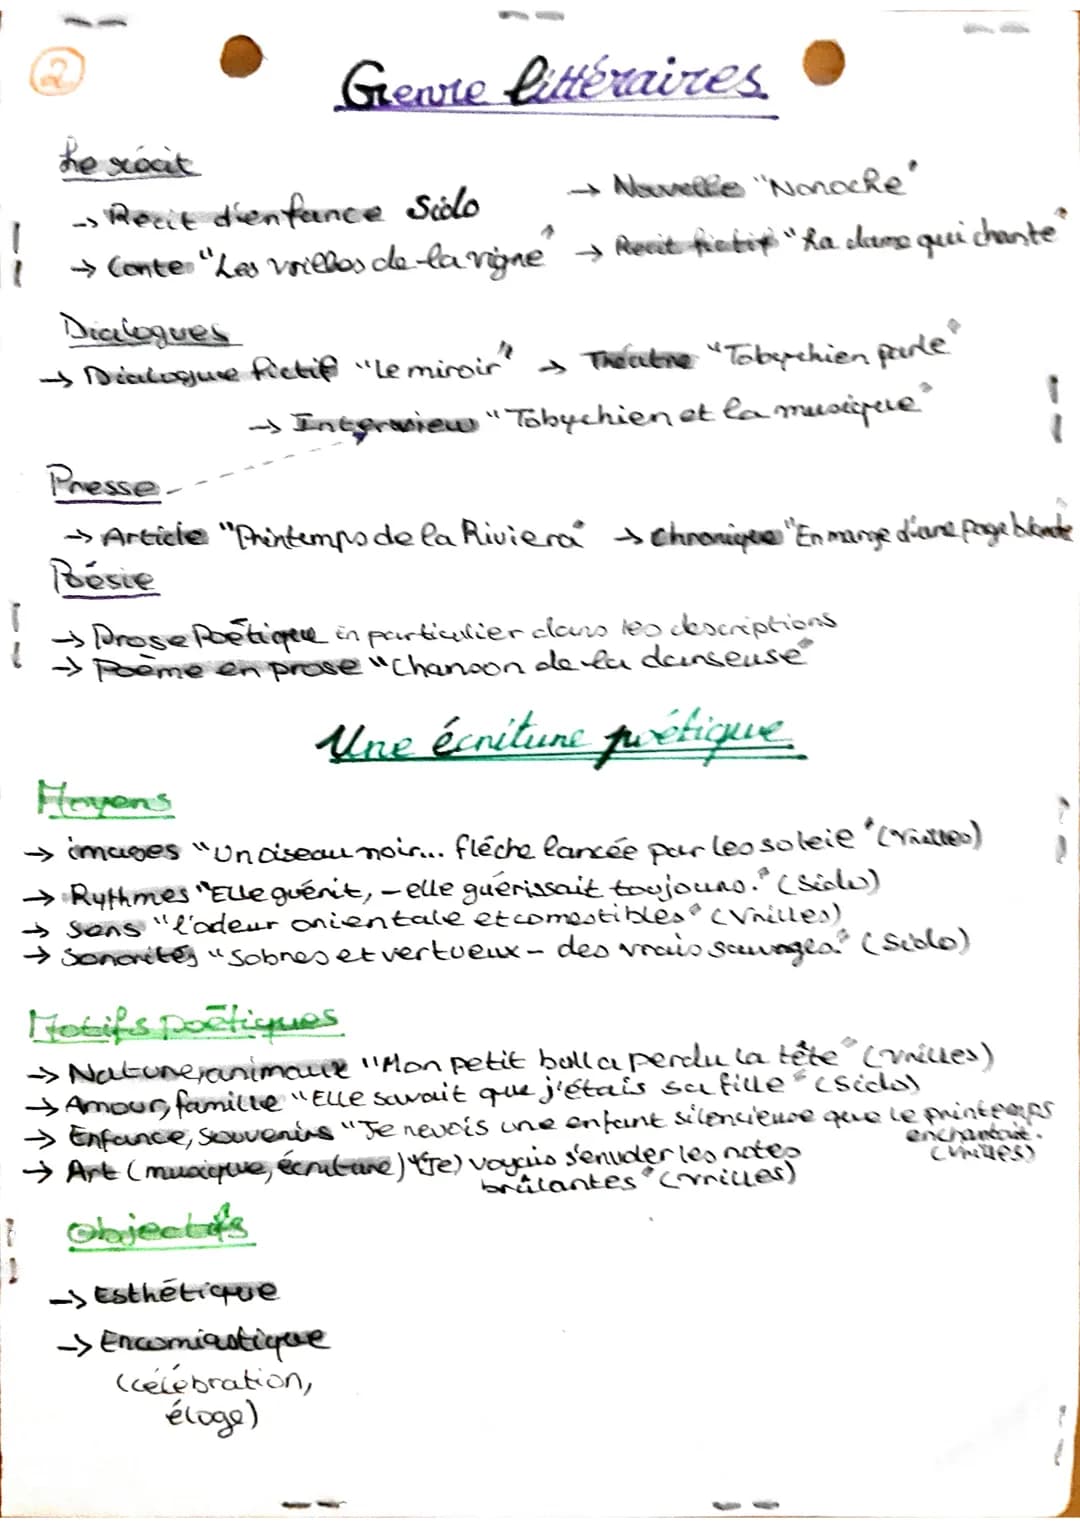 2
Genre littéraires
Le récit
→ Récit d'enfance Sido → Nouvelle "Nonoche"
→ Conte "Les vrilles de la vigne" → Recit fictif "La dame qui chante"
Dialogues
→ Dialogue fictif "Le miroir" → Théatre "Tobychien parle"
→ Interview "Tobychien et la musique"
Presse
→ Article "Printemps de la Riviera" → Chronique "En marge d'une page blanche
Poésie
→ Prose Poétique en particulier dans les descriptions
→ Poème en prose "Chanson de la danseuse"
Une écriture poétique
Moyens
→ images "Un oiseau noir... fléche lancée par les soleie" (Vrilles)
→ Rythmes "Elle guérit, - elle guérissait toujours." (Sido)
→ Sens "l'odeur orientale et comestibles" (Vrilles)
→ Sonorités "Sobres et vertueux - des vrais sauvages." (Sido)
Motifs poétiques
→ Nature, animaux "Mon petit bull a perdu la tête" (Vrilles)
→ Amour, famille "Elle savait que j'étais sa fille" (Sido)
→ Enfance, souvenirs "Je revois une enfant silencieuse que le printemps
enchantait. (Vrilles)
→ Art (musique, écriture) "(Je) voyais s'envoler les notes
brûlantes" (Vrilles)
Objectifs
→ Esthétique
→ Encomiastique
(célébration,
éloge)